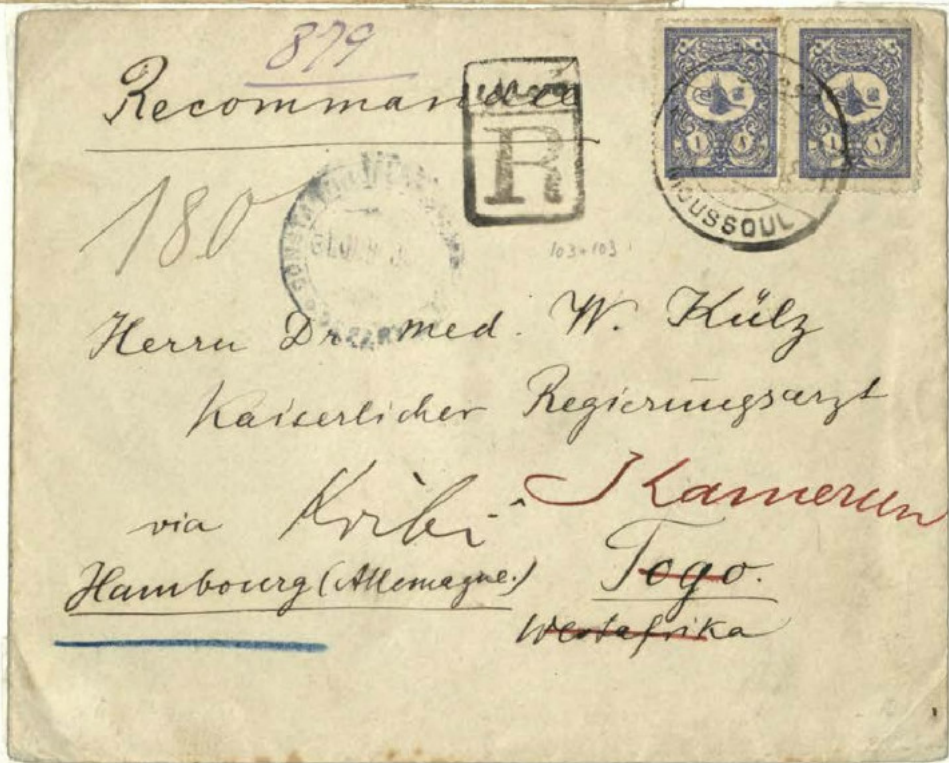 879
Recommandée
R
MOUSSOUL
180
103+103
Herrn Dr. med. W. Külz
Kaiserlicher Regierungsarzt
via Kribi Kamerun
Hambourg (Allemagne.) Togo.
Westafrika